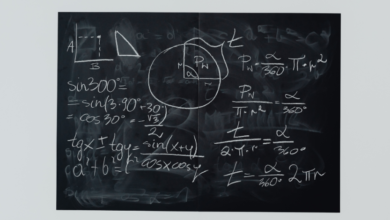 A
3
r
Pw
α
t
sin300°=
=sin(3·90°+30°)
=-cos30°=-√3/2
tgx±tgy=sin(x+y)/cosxcosy
Pw=α/360°·π·r²
Pw/π·r²=α/360°
t/2·π·r=α/360°
t=α/360°·2πr